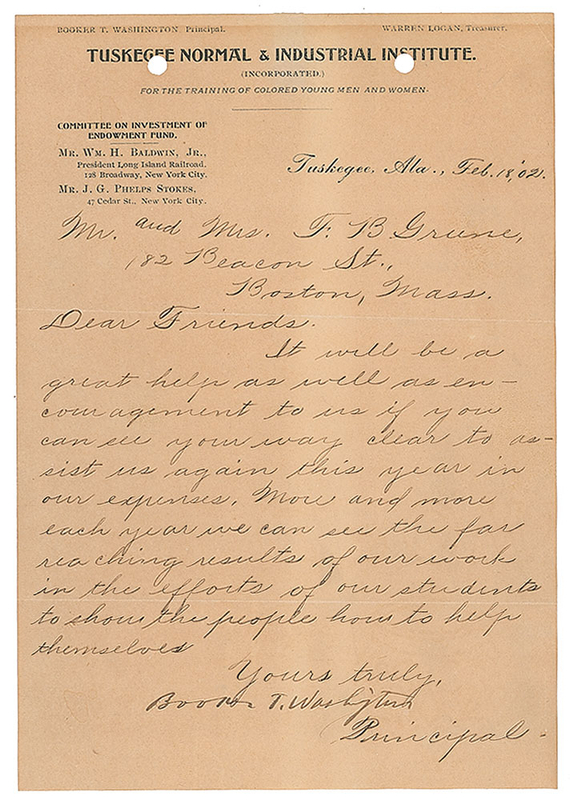 BOOKER T. WASHINGTON Principal. WARREN LOGAN, Treasurer.
TUSKEGEE NORMAL & INDUSTRIAL INSTITUTE.
(INCORPORATED.)
FOR THE TRAINING OF COLORED YOUNG MEN AND WOMEN.
COMMITTEE ON INVESTMENT OF
ENDOWMENT FUND.
MR. WM. H. BALDWIN, JR.,
President Long Island Railroad.
128 Broadway, New York City.
MR. J. G. PHELPS STOKES.
47 Cedar St., New York City.
Tuskegee, Ala., Feb. 18, '02.
Mr. and Mrs. F. B
182 Beacon St.,
Boston, Mass.
Dear Friends.
It will be a
great help as well as en-
couragement to us if you
can see your way clear to as-
sist us again this year in
our expenses. More and more
each year we can see the far
reaching results of our work
in the efforts of our students
to show the people how to help
themselves
Yours truly,
Booker T. Washington
Principal.